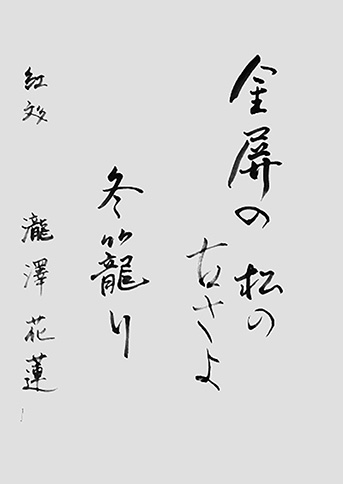 金屏の松の
古さよ
冬籠り
瀧澤花蓮